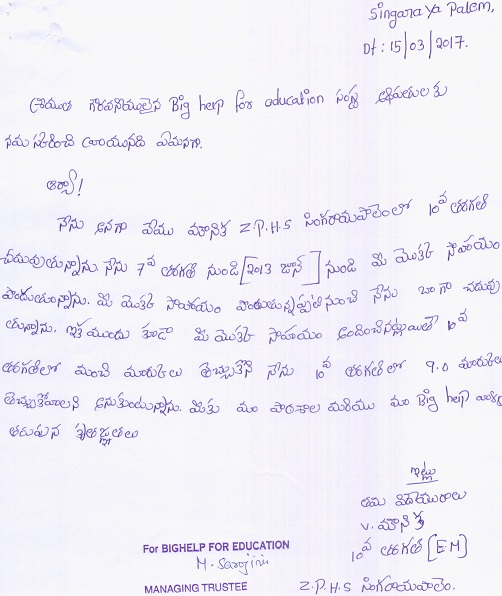 Singaraya Palem,
Dt : 15/03/2017.
శ్రీయుత గౌరవనీయులైన Big help for education సంస్థ అధిపతులకు
నమస్కరించి వ్రాయునది ఏమనగా.
ఆర్యా!
నేను అనగా వేము మౌనిక Z.P.H.S సింగరాయపాలెంలో 10వ తరగతి
చదువుతున్నాను. నేను 7వ తరగతి నుండి [2013 జూన్] నుండి మీ యొక్క సాహాయం
పొందుతున్నాను. మీ యొక్క సాహాయం పొందుతున్నప్పటినుంచి నేను బాగా చదువు
తున్నాను. ఇక ముందు కూడా మీ యొక్క సాహాయం అందించినట్లయితే 10వ
తరగతిలో మంచి మార్కులు తెచ్చుకొని నేను 10వ తరగతిలో 9.0 మార్కులు
తెచ్చుకోవాలని అనుకుంటున్నాను. మీకు మా పాఠశాల మరియు మా Big help
తరుపున కృతజ్ఞతలు
ఇట్లు
తమ విధేయురాలు
V. మౌనిక
10వ తరగతి [E.M]
Z.P.H.S సింగరాయపాలెం.
For BIGHELP FOR EDUCATION
M. Sarojini
MANAGING TRUSTEE